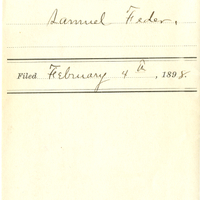 Samuel Feder.
Filed February 9th, 1898.